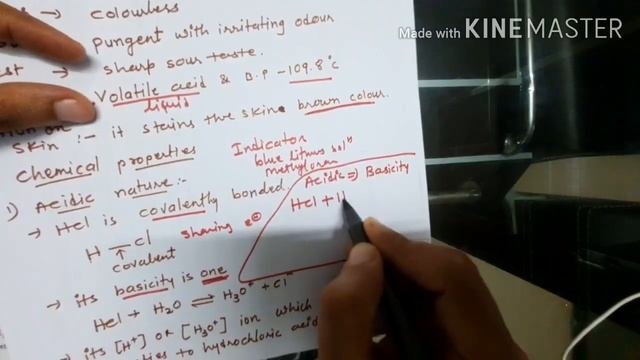 Made with KINEMASTER
→ colourless
pungent with irritating odour
→ sharp sour taste.
Volatile acid & B.P -109.8°C
liquid
skin :- it stains the skin brown colour.
Chemical properties
Indicator
blue litmus solⁿ
1) Acidic nature:-
Acidic => Basicity
→ Hcl is covalently bonded.
Hcl + H
H - cl
sharing e⊖
covalent
→ its basicity is one
Hcl + H2O ⇌ H3O+ + cl-
→ its [H+] or [H3O+] ion which
to hydrochloric acid